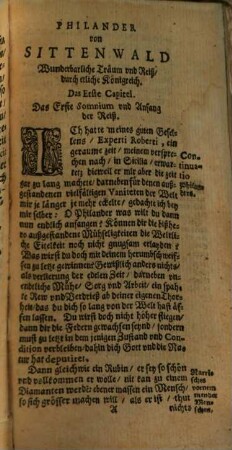 PHILANDER
von
SITTENWALD
Wunderbarliche Träum vnd Reiß/
durch etliche Königreich.
Das Erste Capitel.
Das Erste Somnium vnd Anfang
der Reiß.
ICh hatte meines guten Gesel-
lens / Experti Roberti, ein
geraume zeit / meinen
chen nach / in Sicilia / erwartet
dieweil er mir aber die zeit
gar zu lang machete / darneben für denen auß-
gestandenen vielfältigen Vaniteten der Welt
mir je länger je mehr eckelte / gedachte ich bey
mir selber: O Philander was wilt du dann
nun endlich anfangen? Können dir die bißhe-
ro außgestandene Mühseligkeiten die Weltli-
che Eitelkeit noch nicht gnugsam erleyden?
Was wirst du doch mit deinem herumbschweif-
fen zu letzt gewinnen? Gewißlich anders nichts/
als verlierung der edlen Zeit / darneben
endliche Mühe / Sorg vnd Arbeit / ein spa-
te Rew vnd Verdrieß ab deiner eigenen Thor-
heit / das du dich so lang von der Welt hast äf-
fen lassen. Du wirst doch nicht höher fliegen/
dann dir die Federn gewachsen seynd / sondern
must zu letzt in dem jenigen Zustand vnd Con-
dition verbleiben / dahin dich Gott vnd die Na-
tur hat deputiret.
Dann gleich wie ein Rubin / er sey so schön
vnd vollkommen er wolle / nit kan zu einem
Diamanten werdē: ebener massen ein Mensch/
so sich grösser machen will / als er ist / thut
A
nichts